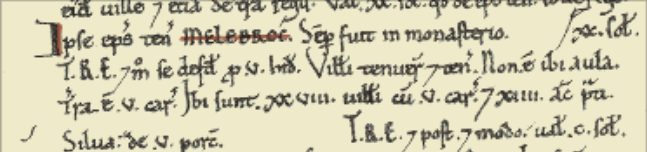 Ipse ep̃s teñ MELEBROC. Sẽp fuit in monasterio. xx. sol̃.
T.R.E. 7 m̊ se defd̃ ꝑ .v. hid̃. Villi tenuer̃ 7 teñ. Non.ẽ ibi aula.
Tr̃a.ẽ.v. car̃. Ibi sunt .xxviii. uilli cũ .v. car̃ 7 xiiii. ac̃ p̃ti.
Silua: de .v. porc̃. T.R.E. 7 post 7 modo. ual̃ .c. sol̃.